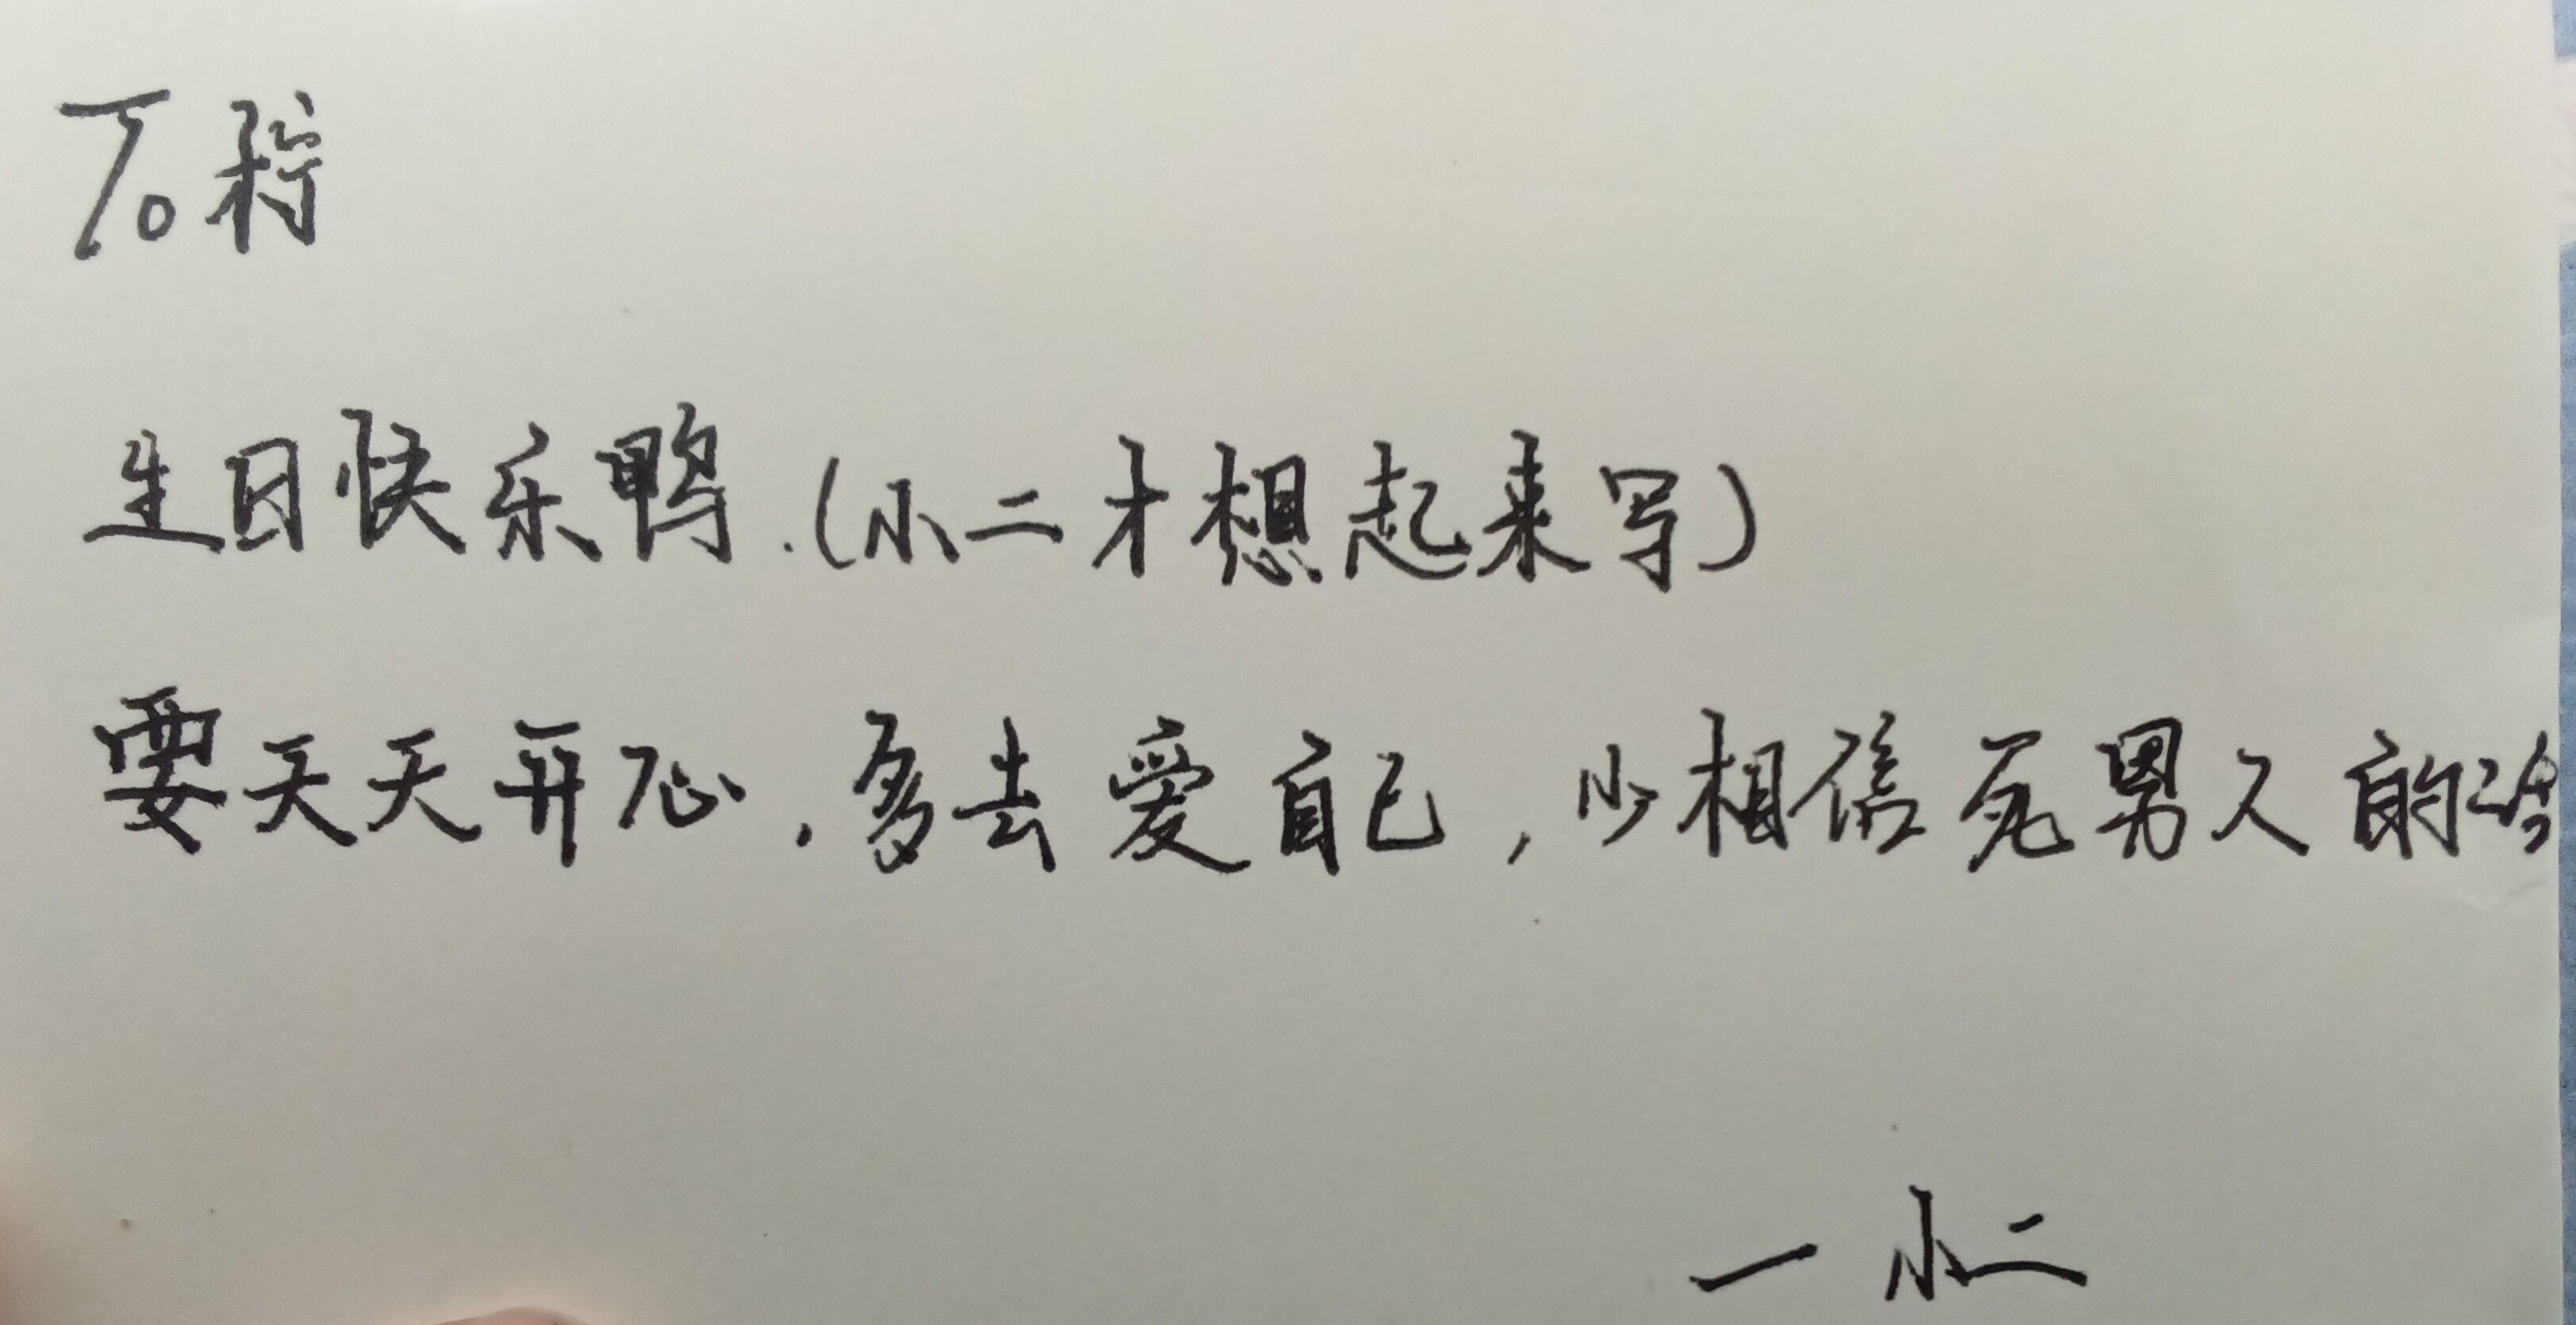 To 柠
生日快乐鸭.(小二才想起来写)
要天天开心,多去爱自己,少相信死男人的话
—小二